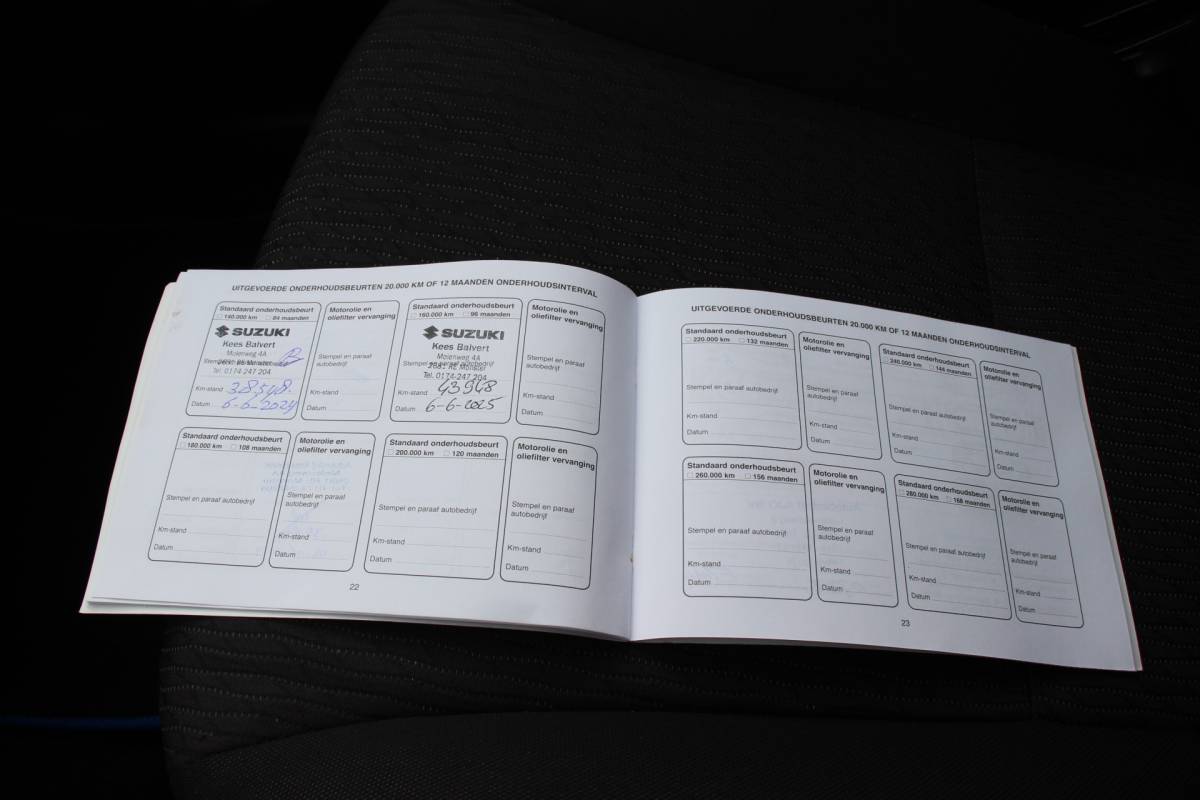 UITGEVOERDE ONDERHOUDSBEURTEN 20.000 KM OF 12 MAANDEN ONDERHOUDSINTERVAL
Standaard onderhoudsbeurt
140.000 km 84 maanden
SUZUKI
Kees Balvert
Molenweg 4A
Stempel en paraaf autobedrijf
Tel. 0174-247 204
Km-stand 38.548.
Datum 6-6-2024
Motorolie en
oliefilter vervanging
Stempel en paraaf
autobedrijf
Km-stand
Datum
Standaard onderhoudsbeurt
160.000 km 96 maanden
SUZUKI
Kees Balvert
Molenweg 4A
Stempel en paraaf autobedrijf
2681 RE Monster
Tel. 0174-247 204
Km-stand 43948
Datum 6-6-2025
Motorolie en
oliefilter vervanging
Stempel en paraaf
autobedrijf
Km-stand
Datum
Standaard onderhoudsbeurt
180.000 km 108 maanden
Stempel en paraaf autobedrijf
Km-stand
Datum
Motorolie en
oliefilter vervanging
Stempel en paraaf
autobedrijf
Km-stand
Datum
Standaard onderhoudsbeurt
200.000 km 120 maanden
Stempel en paraaf autobedrijf
Km-stand
Datum
Motorolie en
oliefilter vervanging
Stempel en paraaf
autobedrijf
Km-stand
Datum
22
UITGEVOERDE ONDERHOUDSBEURTEN 20.000 KM OF 12 MAANDEN ONDERHOUDSINTERVAL
Standaard onderhoudsbeurt
220.000 km 132 maanden
Stempel en paraaf autobedrijf
Km-stand
Datum
Motorolie en
oliefilter vervanging
Stempel en paraaf
autobedrijf
Km-stand
Datum
Standaard onderhoudsbeurt
240.000 km 144 maanden
Stempel en paraaf autobedrijf
Km-stand
Datum
Motorolie en
oliefilter vervanging
Stempel en paraaf
autobedrijf
Km-stand
Datum
Standaard onderhoudsbeurt
260.000 km 156 maanden
Stempel en paraaf autobedrijf
Km-stand
Datum
Motorolie en
oliefilter vervanging
Stempel en paraaf
autobedrijf
Km-stand
Datum
Standaard onderhoudsbeurt
280.000 km 168 maanden
Stempel en paraaf autobedrijf
Km-stand
Datum
Motorolie en
oliefilter vervanging
Stempel en paraaf
autobedrijf
Km-stand
Datum
23